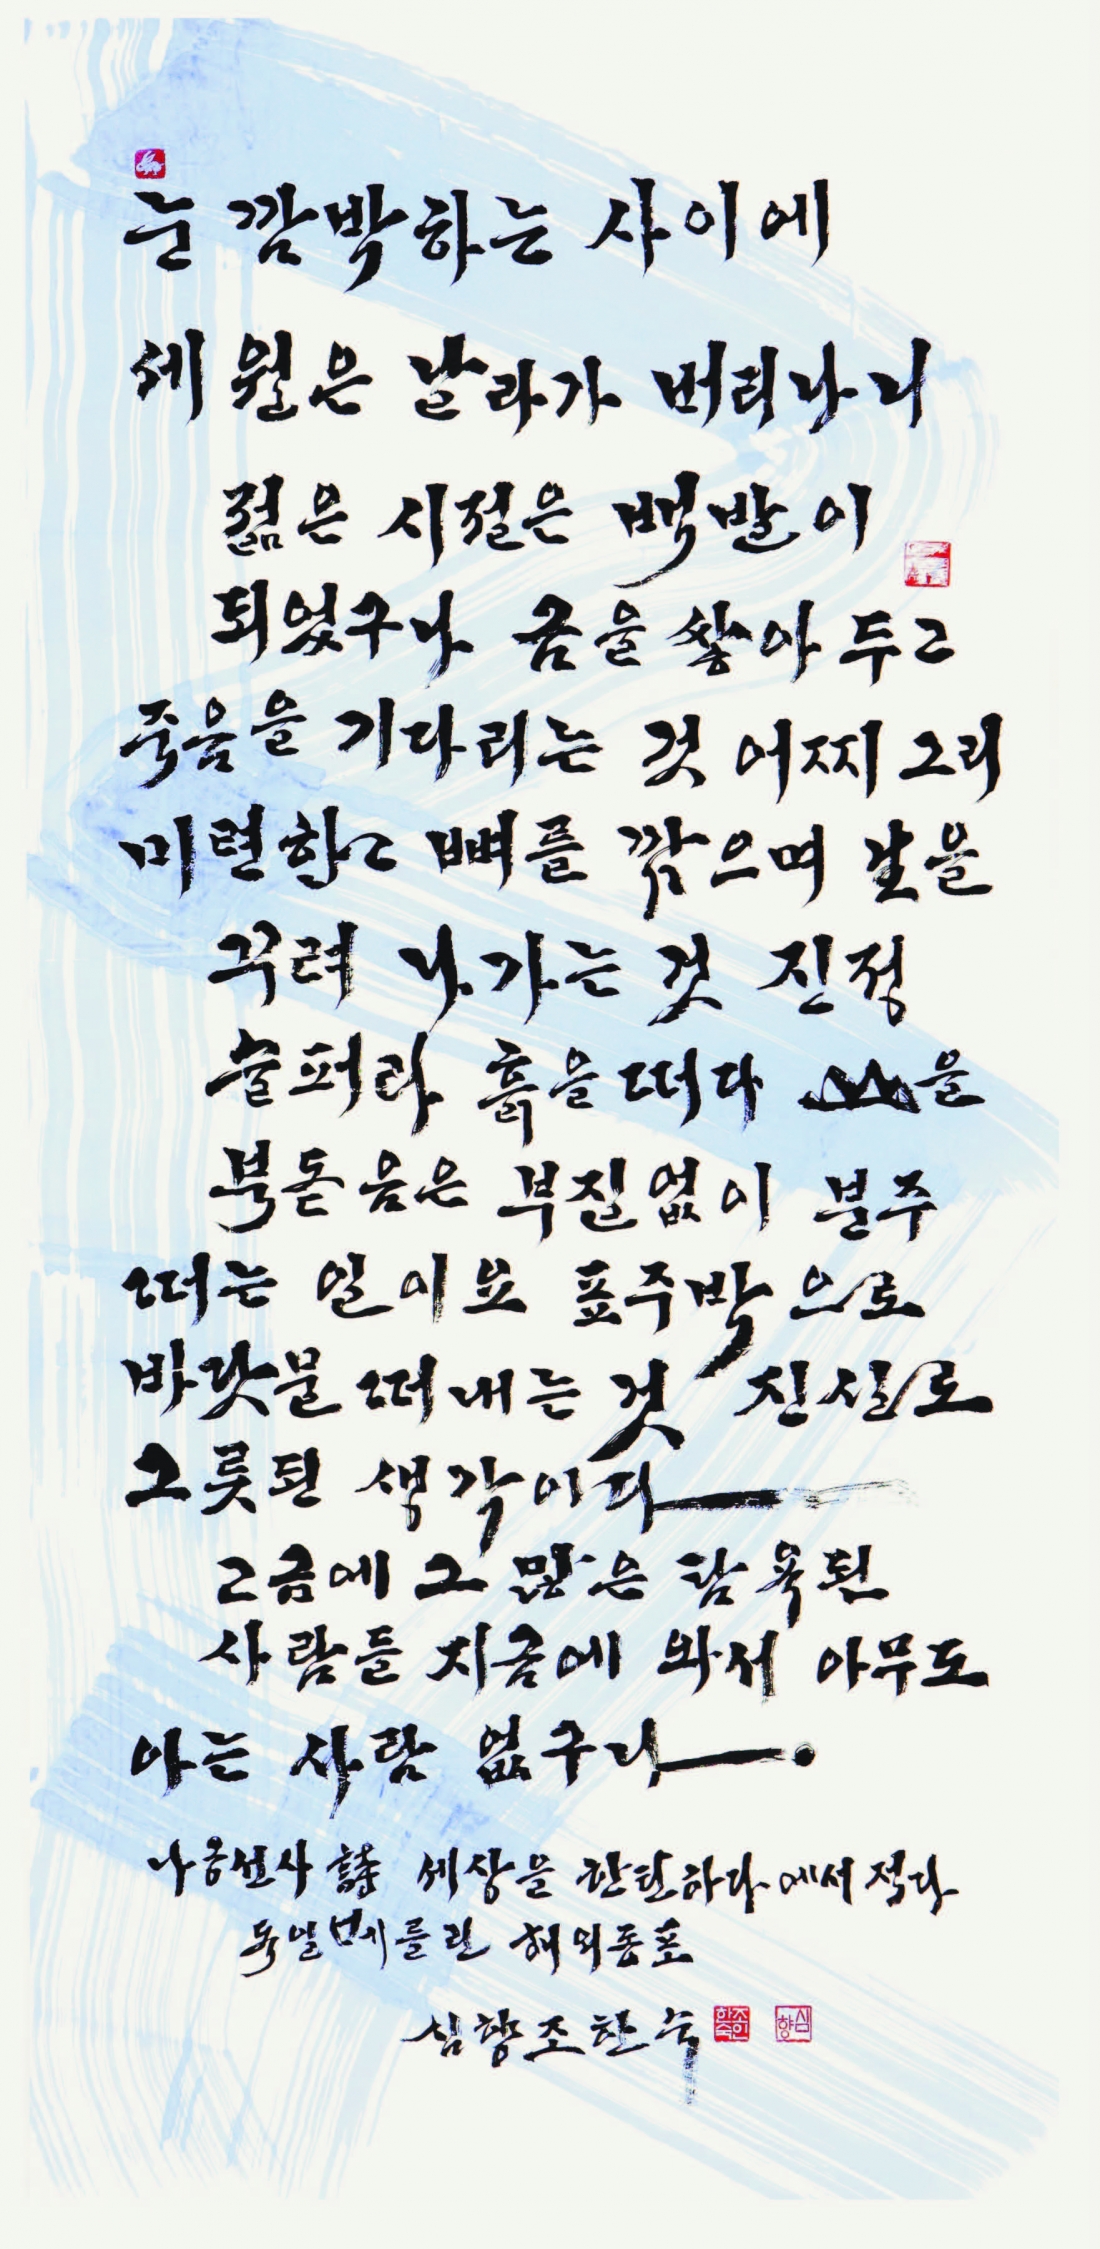 눈 깜박하는 사이에
세월은 날라가 버리나니
젊은 시절은 백발이
되었구나 금을 쌓아 두고
죽음을 기다리는 것 어찌 그리
미련한고 뼈를 깎으며 生을
꾸려 나가는 것 진정
슬퍼라 흙을 떠다 山을
북돋음은 부질없이 분주
떠는 일이요 표주박으로
바닷물 떠내는 것 진실로
그릇된 생각이다
고금에 그 많은 탐욕된
사람들 지금에 와서 아무도
아는 사람 없구나
나옹선사 詩 세상을 한탄하다에서 적다
독일 베를린 해외동포
심향 조한숙
조한숙 심향